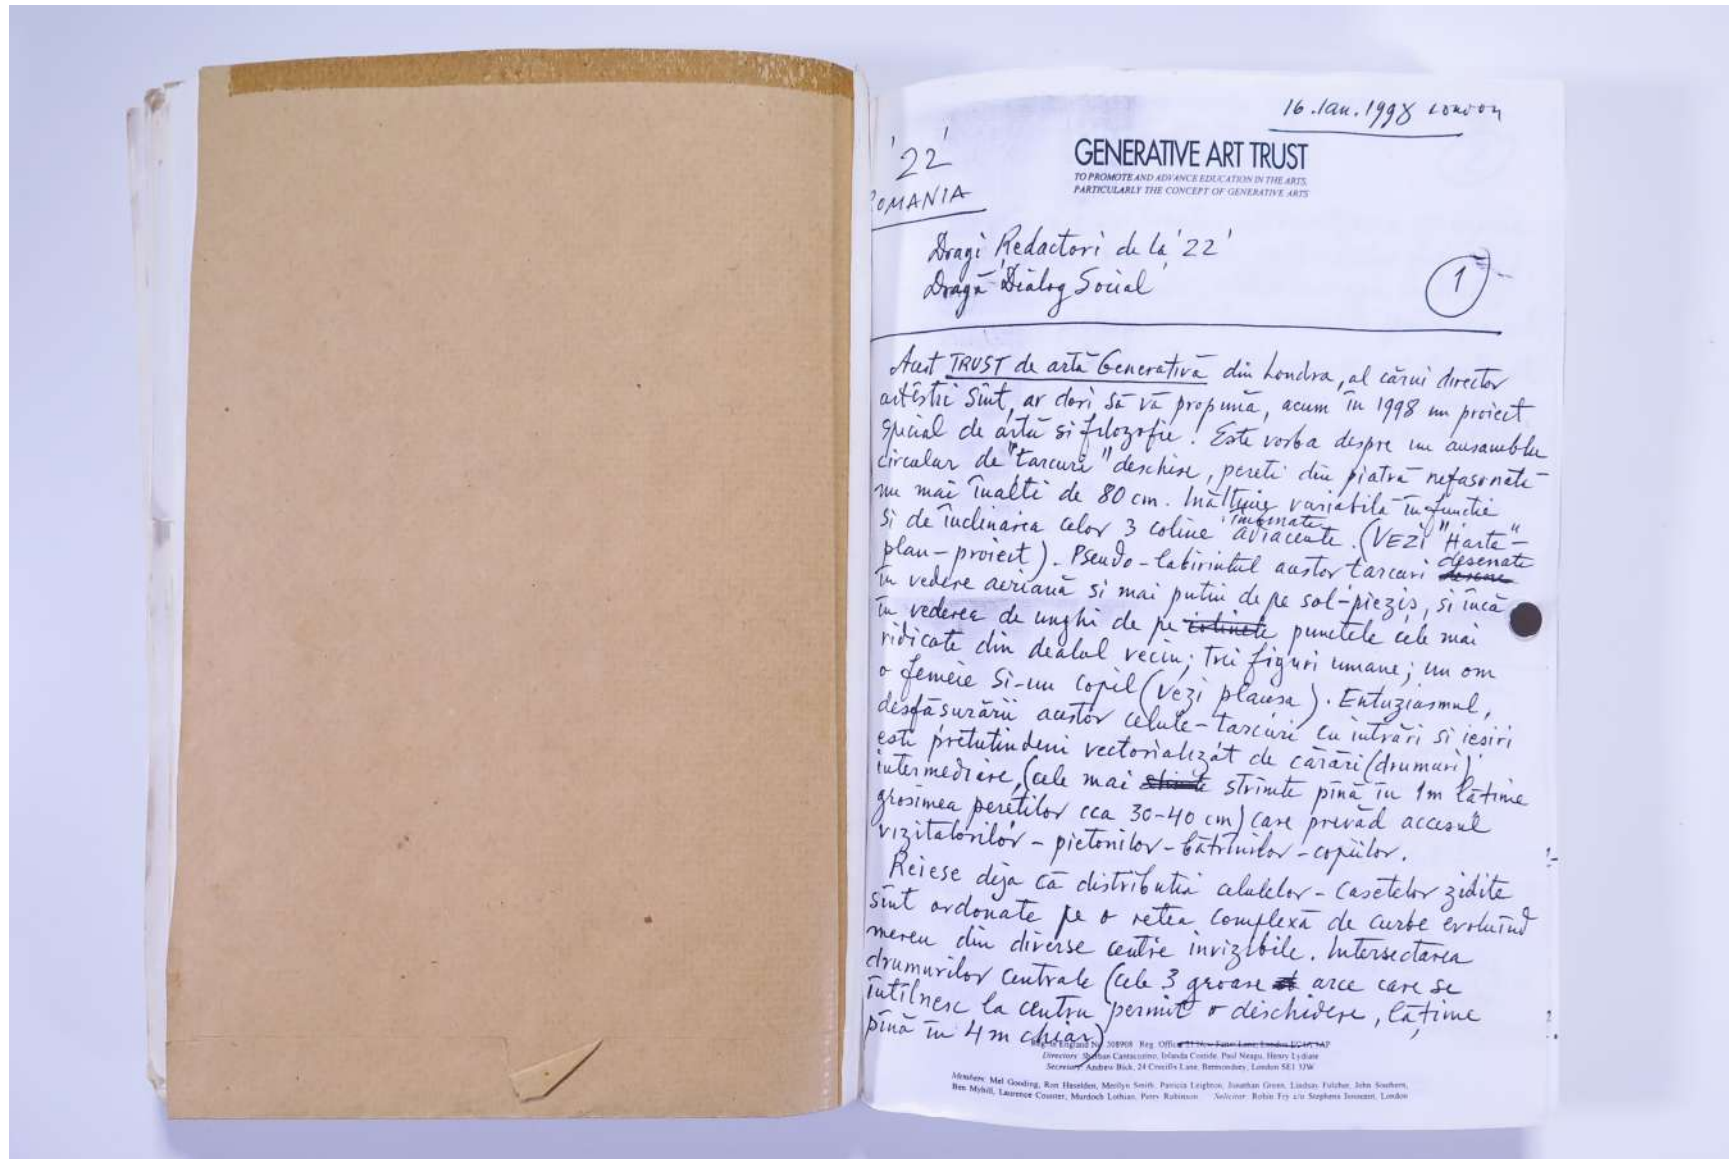 16.Ian.1998 London
'22'
ROMANIA
GENERATIVE ART TRUST
TO PROMOTE AND ADVANCE EDUCATION IN THE ARTS,
PARTICULARLY THE CONCEPT OF GENERATIVE ARTS
Dragi Redactori de la '22'
Dragă 'Dialog Social'
1
Acest TRUST de artă Generativă din Londra, al cărui director
artistic sînt, ar dori să vă propună, acum în 1998 un proiect
special de artă si filozofie! Este vorba despre un ansamblu
circular de "tarcuri" deschise, pereti din piatră nefasonată
nu mai înalti de 80 cm. Inăltime variabilă în functie
si de înclinarea celor 3 coline îmbinate adiacente. (VEZI "Harta"-
plan-proiect). Pseudo-labirintul acestor tarcuri desenate
în vedere aeriană si mai putin de pe sol-piezis, si încă
în vederea de unghi de pe punctele cele mai
ridicate din dealul vecin; trei figuri umane; un om
o femeie si-un copil (vezi plansa). Entuziasmul,
desfăsurării acestor celule-tarcuri cu intrări si iesiri
este pretutindeni vectorializat de cărări (drumuri)
intermediare, (cele mai strimte pînă în 1m lătime
grosimea peretilor cca 30-40 cm) care prevăd accesul
vizitatorilor - pietonilor - bătrînilor - copiilor.
Reiese deja că distributia celulelor - casetelor zidite
sînt ordonate pe o retea complexă de curbe evoluînd
mereu din diverse centre invizibile. Intersectarea
drumurilor centrale (cele 3 groase arce care se
întîlnesc la centru permit o deschidere, lătime
pînă în 4 m chiar)
in England No 308908 Reg. Office
Directors: Sherban Cantacuzino, Iolanda Costide, Paul Neagu, Henry Lydiate
Secretary: Andrew Bick, 24 Crucifix Lane, Bermondsey, London SE1 3JW
Members: Mel Gooding, Ron Haselden, Merilyn Smith, Patricia Leighton, Jonathan Green, Lindsay Fulcher, John Southern,
Ben Myhill, Laurence Coussier, Murdoch Lothian, Perry Robinson Solicitor: Robin Fry c/o Stephens Innocent, London